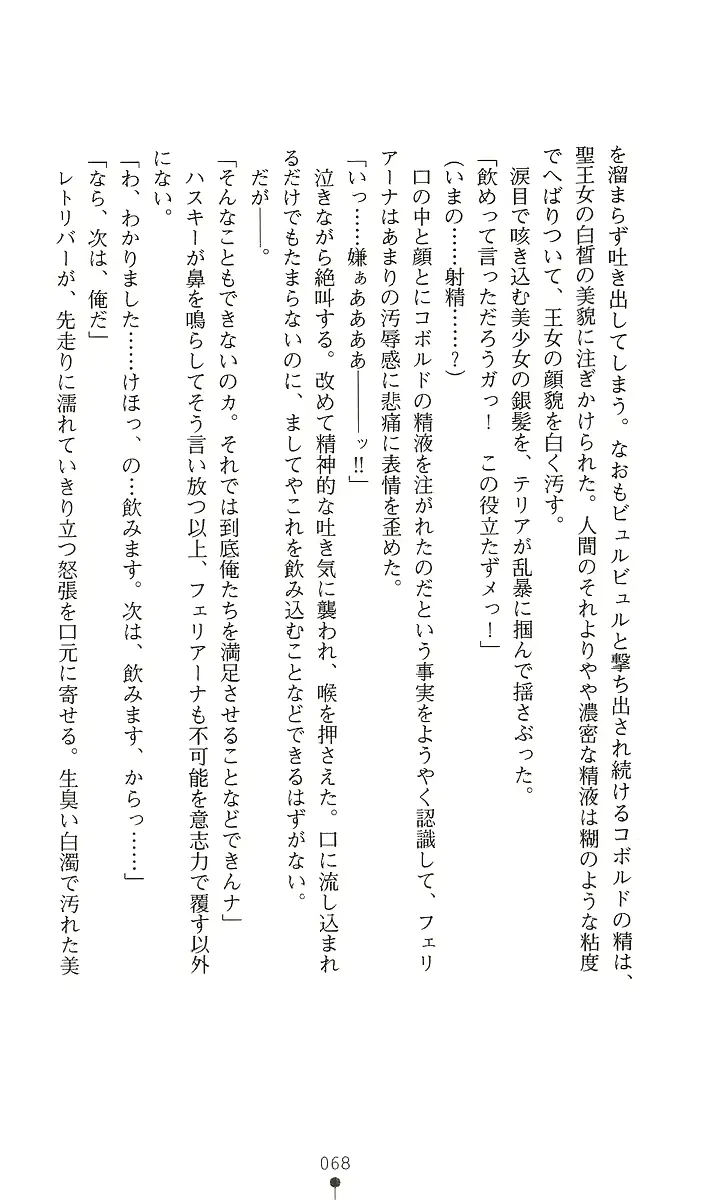 を溜まらず吐き出してしまう。なおもビュルビュルと撃ち出され続けるコボルドの精は、
聖王女の白皙の美貌に注ぎかけられた。人間のそれよりやや濃密な精液は糊のような粘度
でへばりついて、王女の顔貌を白く汚す。
涙目で咳き込む美少女の銀髪を、テリアが乱暴に掴んで揺さぶった。
「飲めって言っただろうガっ！　この役立たずメっ！」
（いまの……射精……？）
口の中と顔とにコボルドの精液を注がれたのだという事実をようやく認識して、フェリ
アーナはあまりの汚辱感に悲痛に表情を歪めた。
「いっ……嫌ぁあああ――――ッ!!」
泣きながら絶叫する。改めて精神的な吐き気に襲われ、喉を押さえた。口に流し込まれ
るだけでもたまらないのに、ましてやこれを飲み込むことなどできるはずがない。
だが――。
「そんなこともできないのカ。それでは到底俺たちを満足させることなどできんナ」
ハスキーが鼻を鳴らしてそう言い放つ以上、フェリアーナも不可能を意志力で覆す以外
にない。
「わ、わかりました……けほっ、の…飲みます。次は、飲みます、からっ……」
「なら、次は、俺だ」
レトリバーが、先走りに濡れていきり立つ怒張を口元に寄せる。生臭い白濁で汚れた美
068